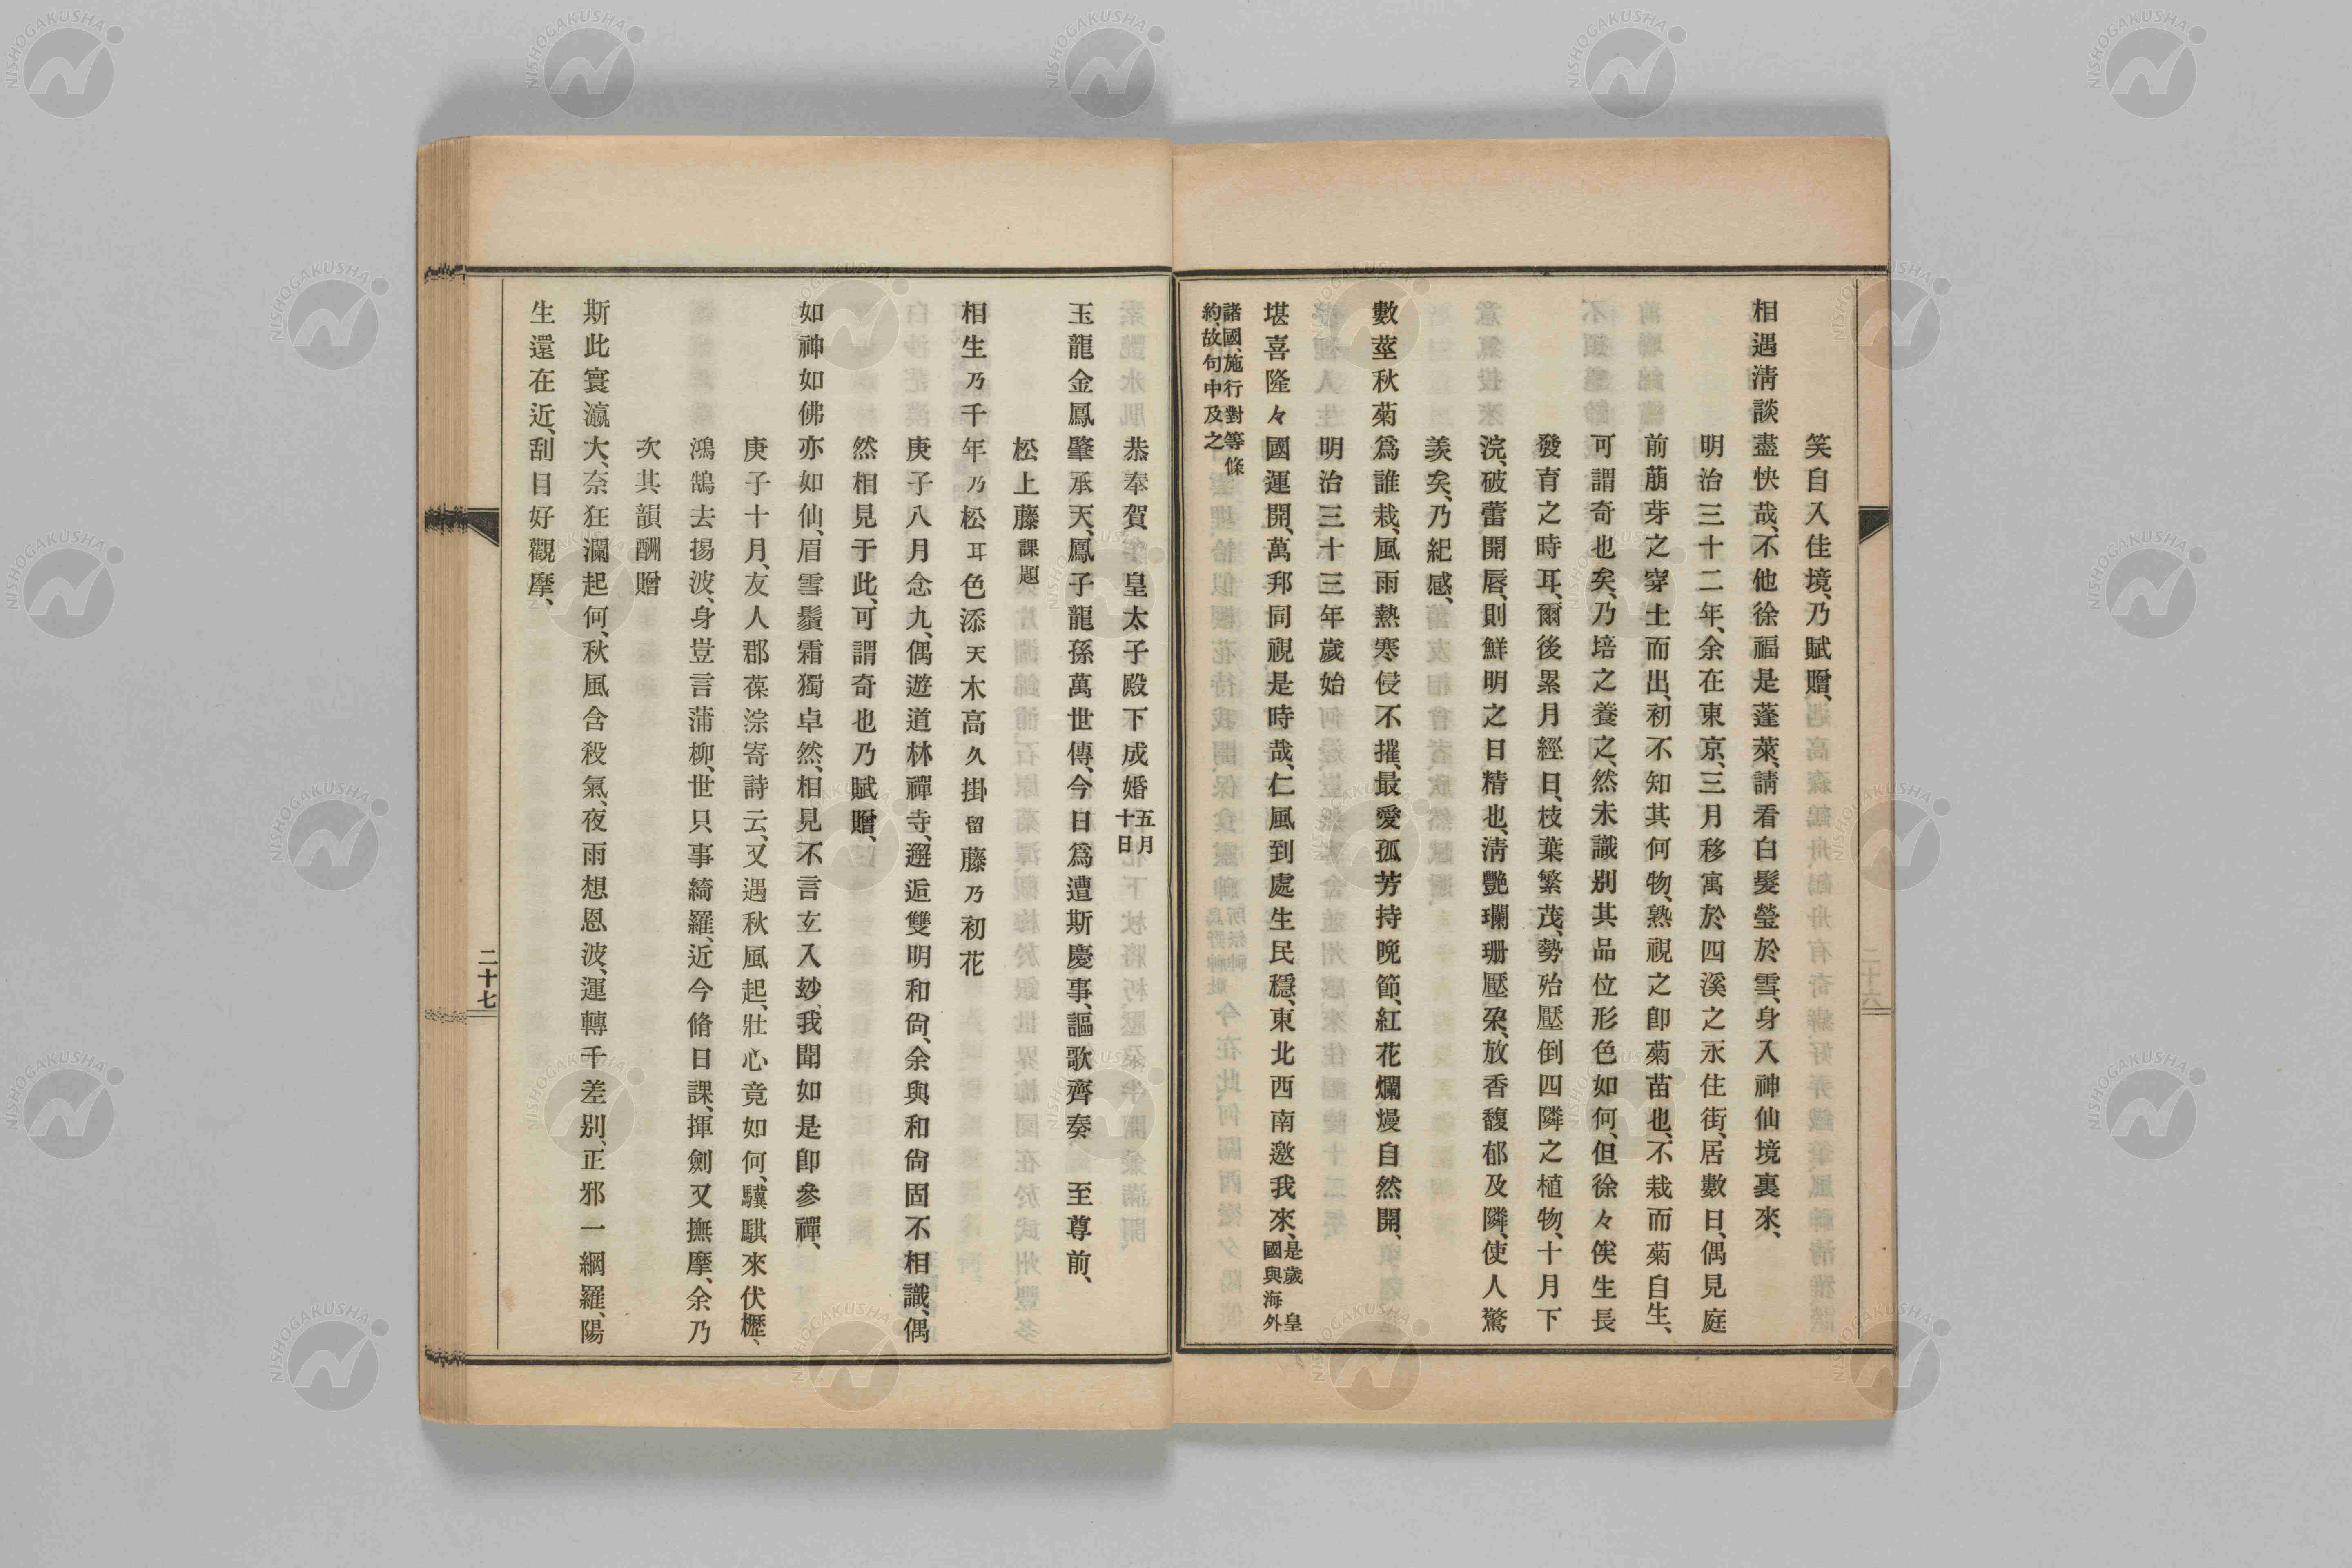 笑自入佳境、乃賦贈、
相遇淸談盡快哉、不他徐福是蓬萊、請看白髮瑩於雪、身入神仙境裏來、
明治三十二年、余在東京、三月移寓於四溪之永住街、居數日、偶見庭
前萠芽之穿土而出、初不知其何物、熟視之卽菊苗也、不栽而菊自生、
可謂奇也矣、乃培之養之、然未識別其品位形色如何、但徐々俟生長
發育之時耳、爾後累月經日、枝葉繁茂、勢殆壓倒四隣之植物、十月下
浣、破蕾開唇、則鮮明之日精也、淸艷瓓珊壓朶、放香馥郁及隣、使人驚
羨矣、乃紀感、
數莖秋菊爲誰栽、風雨熱寒侵不摧、最愛孤芳持晩節、紅花爛熳自然開、
明治三十三年歲始
堪喜隆々國運開、萬邦同視是時哉、仁風到處生民穩、東北西南邀我來、是歲 皇
國與海外
諸國、施行對等條
約、故句中及之
恭奉賀 皇太子殿下成婚五月
十日
玉龍金鳳肇承天、鳳子龍孫萬世傳、今日爲遭斯慶事、謳歌齊奏 至尊前、
松上藤課題
相生乃千年乃松耳色添天木高久掛留藤乃初花
庚子八月念九、偶遊道林禪寺、邂逅雙明和尙、余與和尙固不相識、偶
然相見于此、可謂奇也乃賦贈、
如神如佛亦如仙、眉雪鬚霜獨卓然、相見不言玄入玅、我聞如是卽參禪、
庚子十月、友人郡葆淙寄詩云、又遇秋風起、壯心竟如何、驥騏來伏櫪、
鴻鵠去揚波、身豈言蒲柳、世只事綺羅、近今脩日課、揮劍又撫摩、余乃
次其韻酬贈
斯此寰瀛大、奈狂瀾起何、秋風含殺氣、夜雨想恩波、運轉千差別、正邪一綱羅、陽
生還在近、刮目好觀摩、
二十七
NISHOGAKUSHA